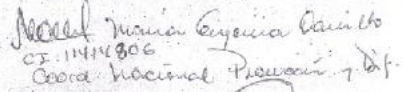 Maria Eugenia Carrillo
CI. 11414806
Coord. Nacional Promoción y Dif.